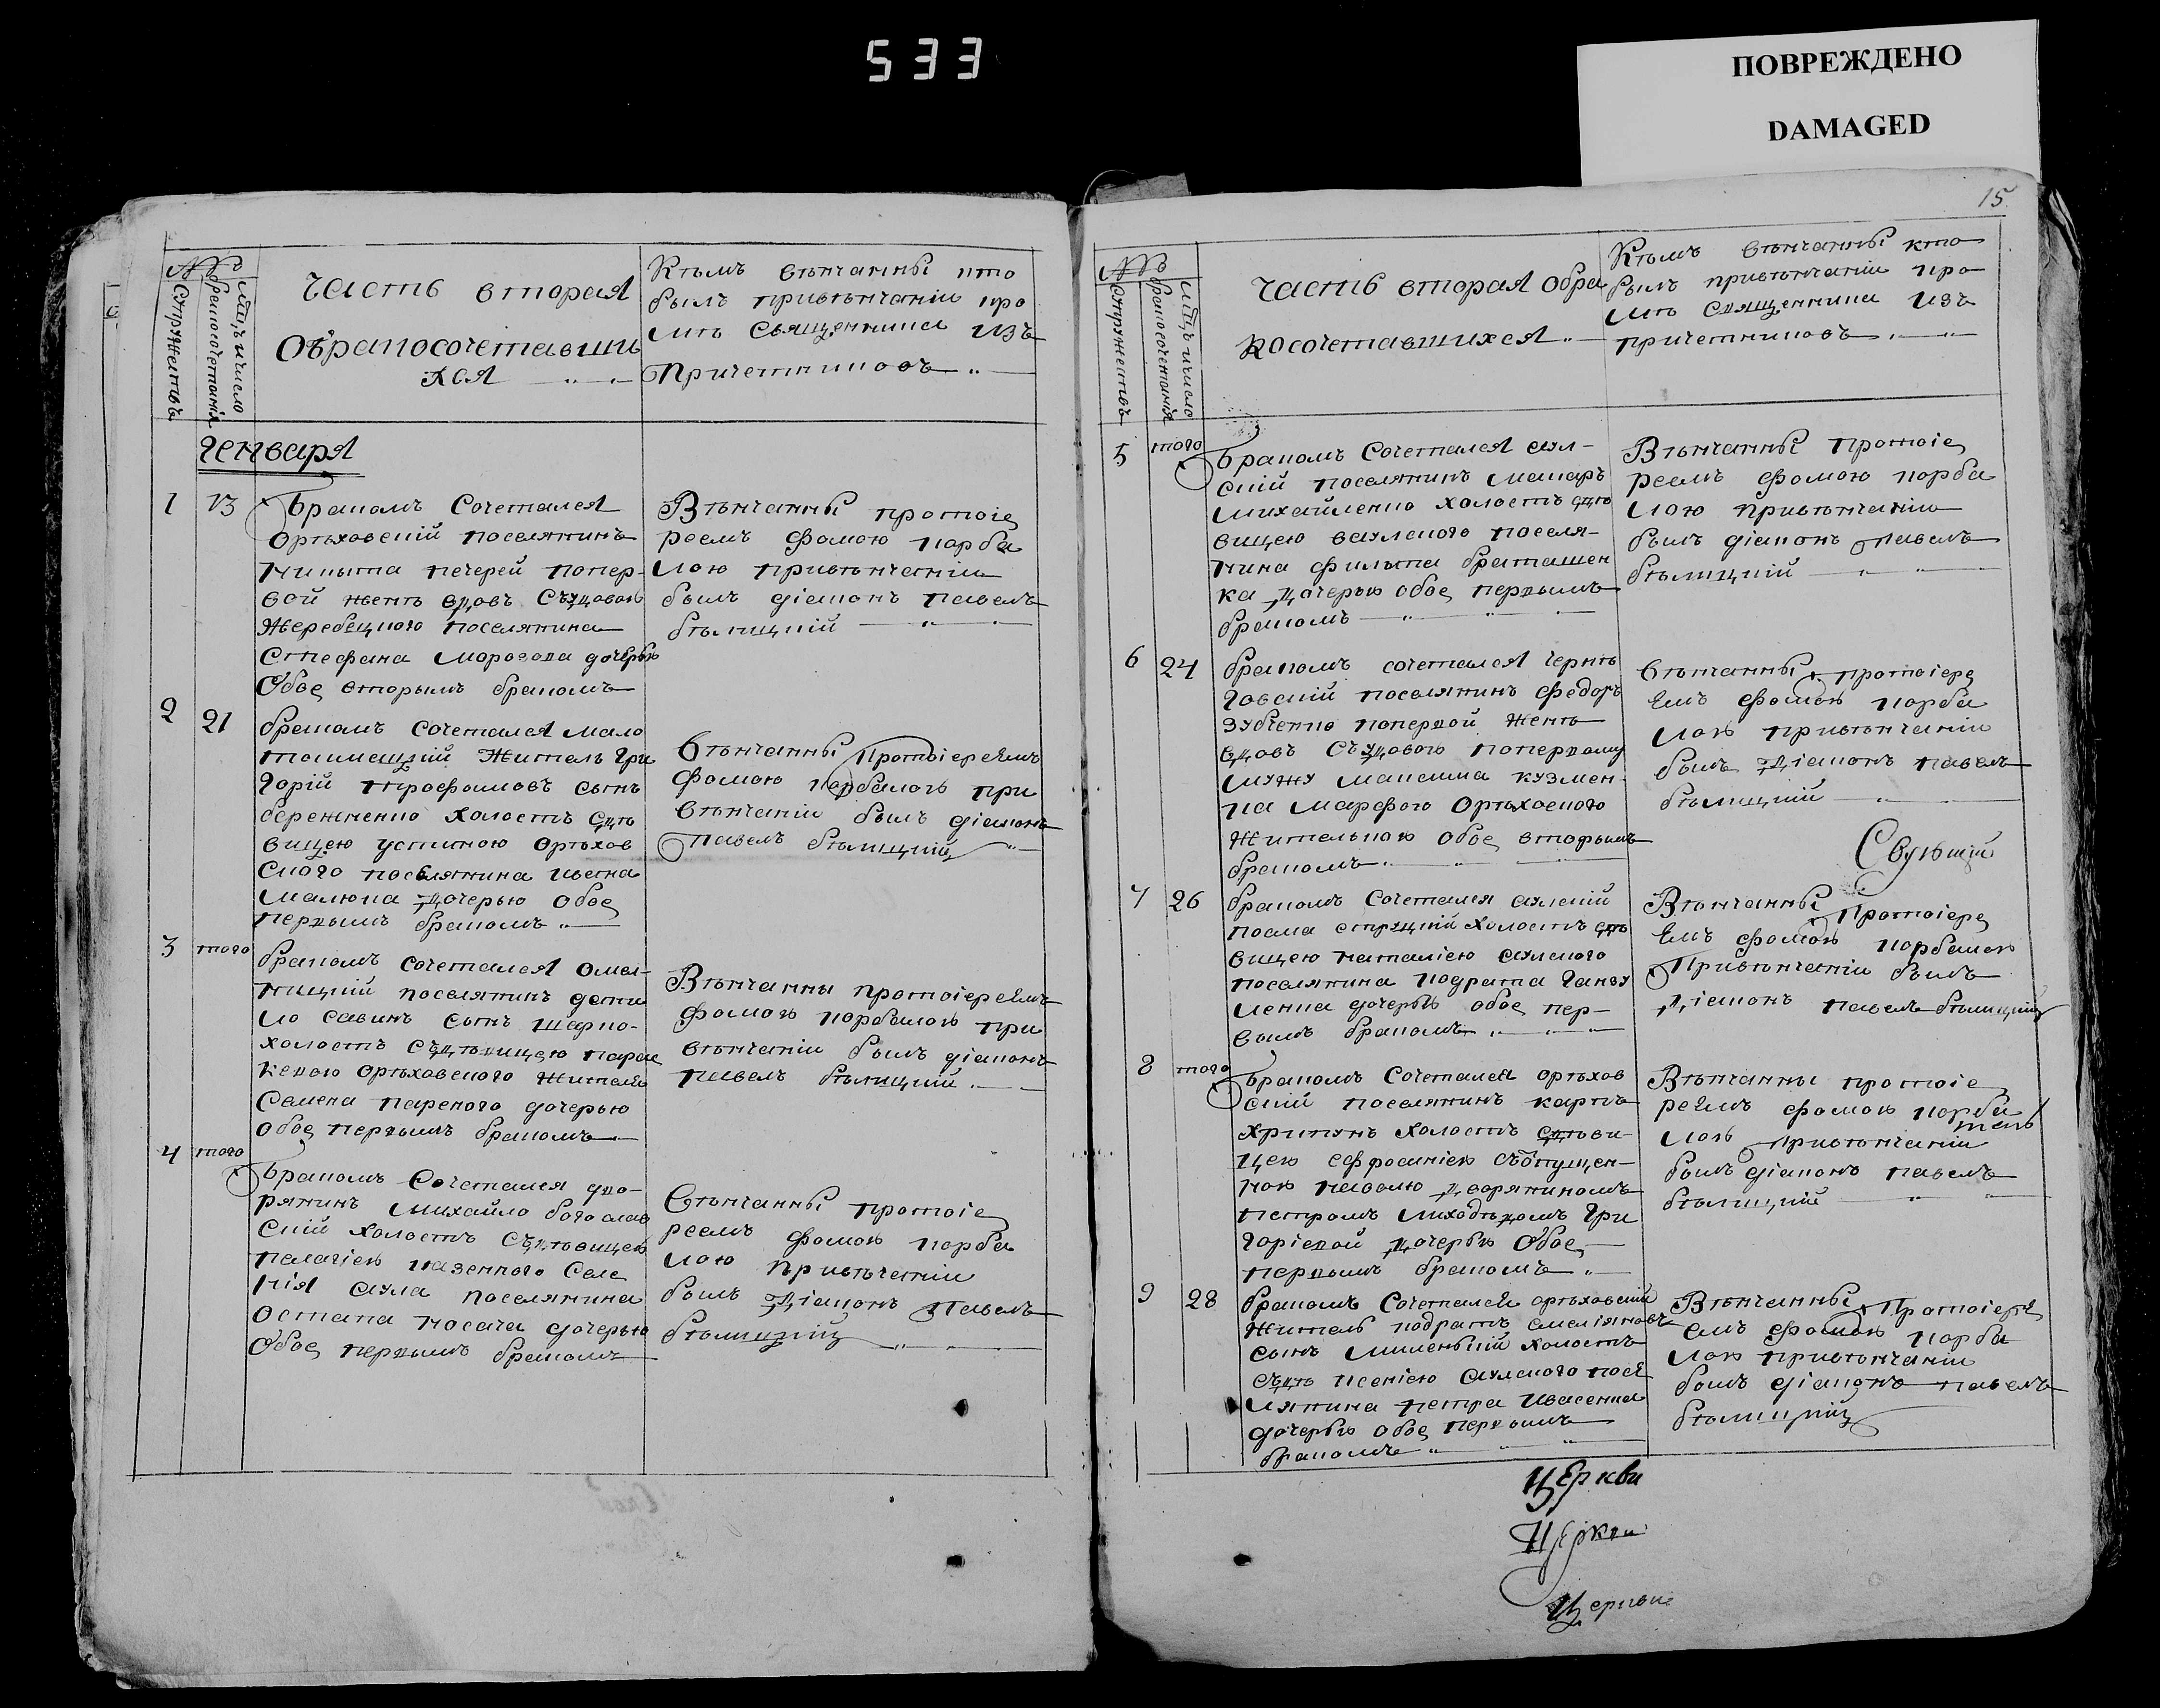 533
ПОВРЕЖДЕНО
DAMAGED
15
№
Супружествъ
Мцъ и число
бракосочетанія
Часть вторая
Обракосочетавши
хся
Кѣмъ вѣнчанны кто
былъ привѣнчаніи кро
мѣ священника изъ
Причетниковъ
Генваря
1 13
Бракомъ Сочетался
Орѣховскій поселянинъ
Никита печерей попер-
вой женѣ вдовъ Съудовою
Жеребецкого поселянина
Стефана Морозова дочерью
Обое вторымъ бракомъ
Вѣнчанны протоіе
реемъ Фомою корба
лою привѣнчаніи
былъ діаконъ павелъ
бѣлицкій
2 21
бракомъ сочетался мало
токмацкій Житель Гри
горій трофимовъ сынъ
бережненко холостъ сдѣ
вицею устиною Орѣхов
ского поселянина ивана
малюка дочерью Обое
первымъ бракомъ
Вѣнчанны Протоіереемъ
Фомою корбалою при
вѣнчаніи былъ діаконъ
павелъ бѣлицкій
3 того
бракомъ сочетался омел-
ницкій поселянинъ дани
ло савинъ сынъ шарко-
холостъ съдѣвицею парас
кевою Орѣховского жителя
Семена парского дочерью
обое первымъ бракомъ
Вѣнчанны протоіереемъ
Фомою корбалою при
вѣнчаніи былъ діаконъ
павелъ бѣлицкій
4 того
Бракомъ Сочетался дво-
рянинъ михайло богослав
скій холостъ съдѣвицею
пелагіею казенного Селе
нія аула поселянина
остапа носача дочерью
Обое первымъ бракомъ
Вѣнчанны протоіе
реемъ Фомою корба
лою привѣчаніи
былъ діаконъ павелъ
бѣлицкій
№
Супружествъ
Мцъ и число
бракосочетанія
Часть вторая Обра
косочетавшихся
Кѣмъ вѣнчанны кто
былъ привѣнчаніи кро
мѣ священника изъ
причетниковъ
5 того
Бракомъ Сочетался аул-
скій поселянинъ макаръ
михайленко холостъ сдѣ
вицею ааулского поселя-
нина филипа браташен
ка дочерью обое первымъ
бракомъ
Вѣнчанны протоіе
реемъ Фомою корба
лою привѣнчаніи
былъ діаконъ павелъ
бѣлицкій
6 24
бракомъ сочетался черни
говскій поселянинъ Федоръ
зубченко попервой женѣ
вдовъ съудовою попервому
мужу максима кузмен-
ка марфою Орѣховского
жителькою обое вторымъ
бракомъ
вѣнчанны протоіере
емъ Фомою корба
лою привѣнчаніи
былъ діаконъ павелъ
бѣлицкій
7 26
бракомъ Сочетался аулскій
холостъ сдѣ
вицею наталіею аулского
поселянина кодрата
дочерью обое пер-
вымъ бракомъ
Вѣнчанны протоіере
емъ Фомою корбалою
Привѣнчаніи былъ
діаконъ павелъ бѣлицкій
8 того
Бракомъ Сочетался орѣхов
скій поселянинъ карпъ
хрипунъ холостъ сдѣви
цею ефросиніею съотпущен-
ною наволю дворяниномъ
петромъ Гри
горіевой дочерью Обое
первымъ бракомъ
Вѣнчанны протоіе
реемъ Фомою корба
лою привѣнчаніи
былъ діаконъ павелъ
бѣлицкій
9 28
бракомъ Сочетался орѣховскій
житель кодратъ емеліяновъ
сынъ холостъ
съдѣ ксеніею аулского посе
лянина петра ивасенка
дочерью обое первымъ
бракомъ
Вѣнчанны протоіере
емъ Фомою корба
лою привѣнчаніи
былъ діаконъ павелъ
бѣлицкій
Церкви
Церкви
Церкви